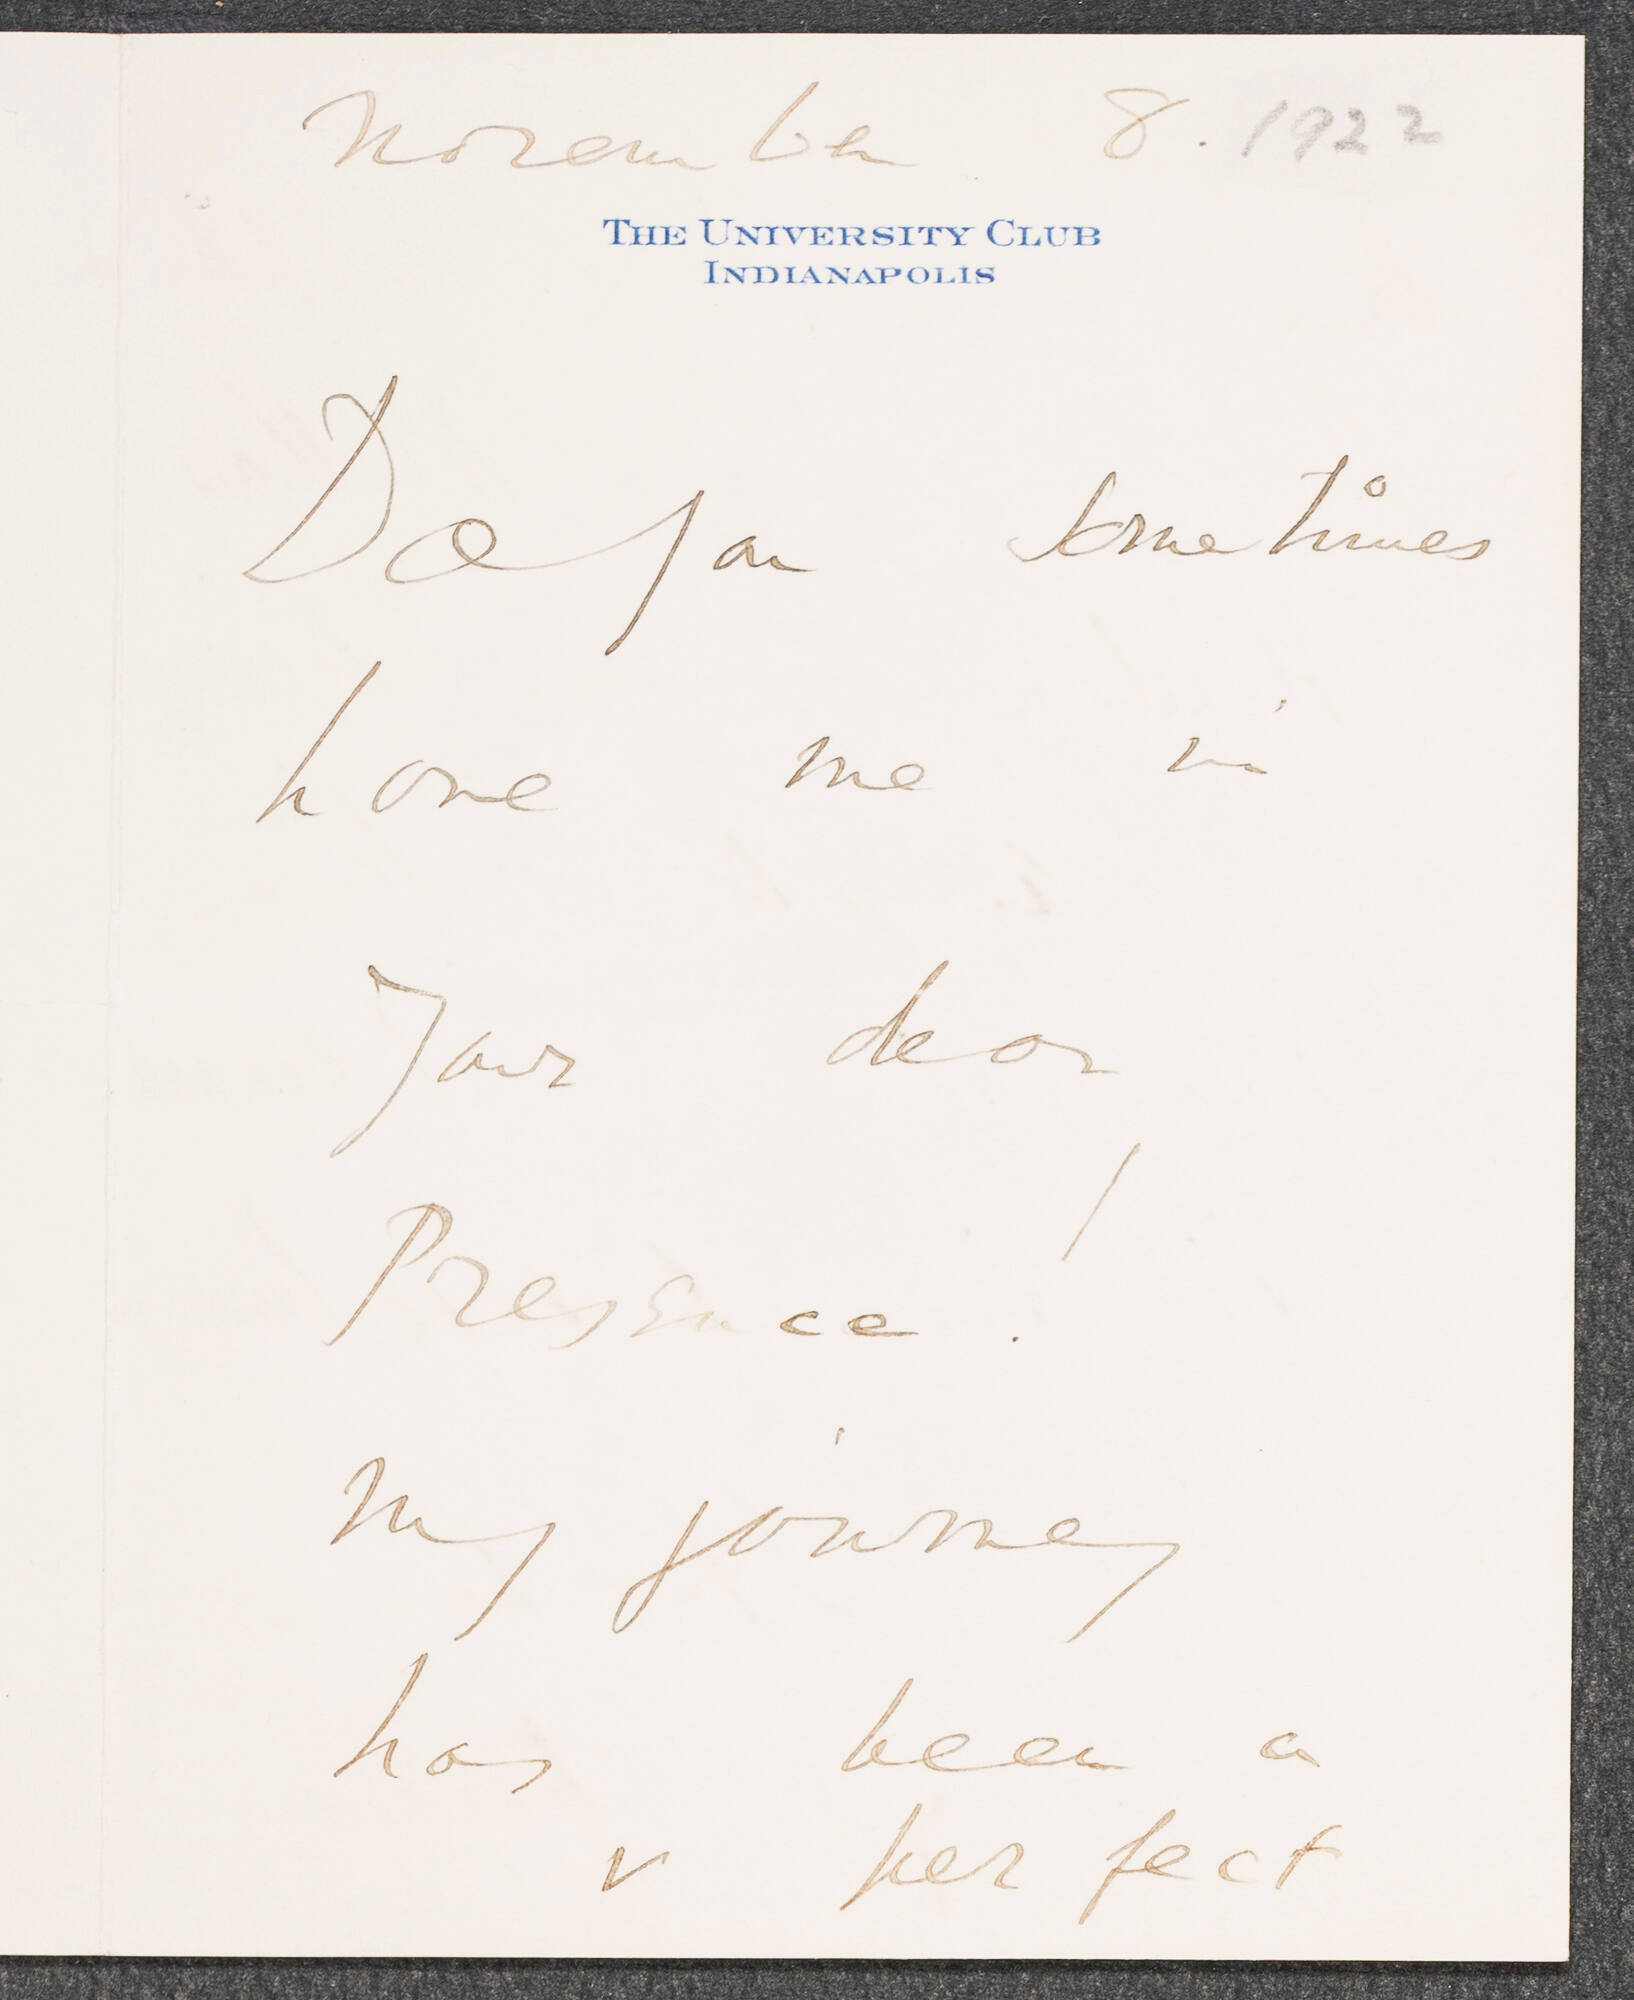 November 8. 1922
THE UNIVERSITY CLUB
INDIANAPOLIS
Do you sometimes
have me in
your dear
Presence!
My journey
has been a
perfect